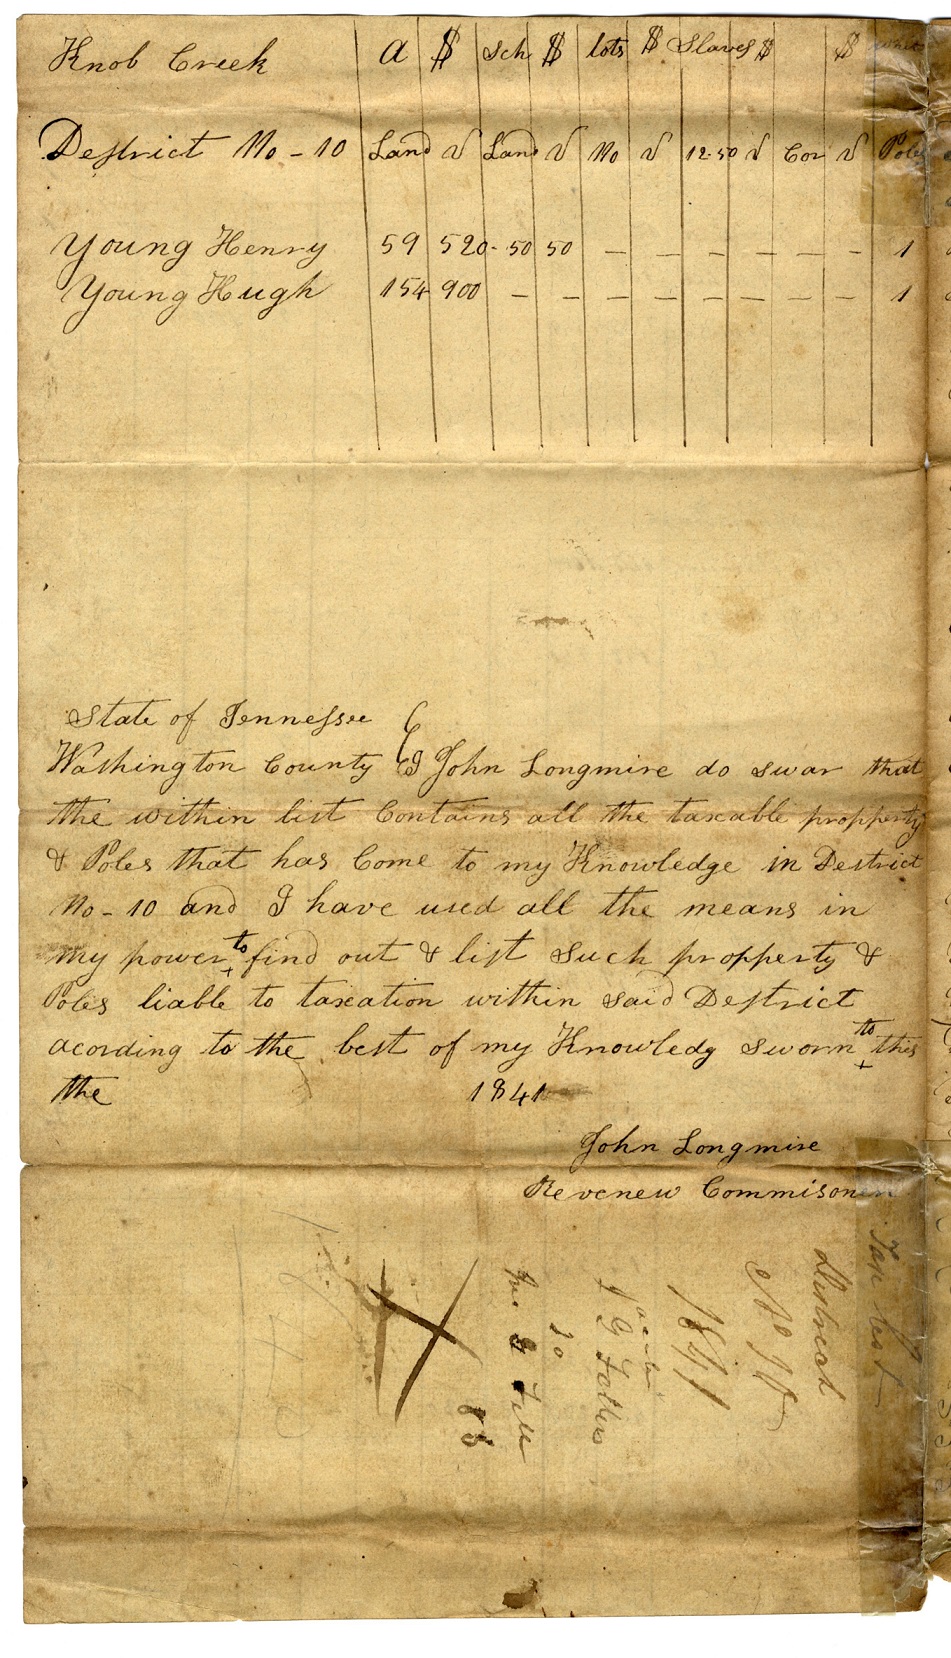 Knob Creek a $ Sch $ lots $ Slaves $ $ white
Destrict No - 10 Land v Land v No v 12-50 v Cor v Poles
Young Henry 59 520 - 50 50 – – – – – – 1
Young Hugh 154 900 – – – – – – – – 1
State of Tennessee
Washington County I John Longmire do swar that
the within list Contains all the taxable propperty
& Poles that has Come to my Knowledge in Destrict
No - 10 and I have used all the means in
my power to find out & list Such propperty &
Poles liable to taxation within said Destrict
acording to the best of my Knowledg sworn to this
the 1841
John Longmire
Revenew Commisoner
Tax list
District
No 10
1841
10
88